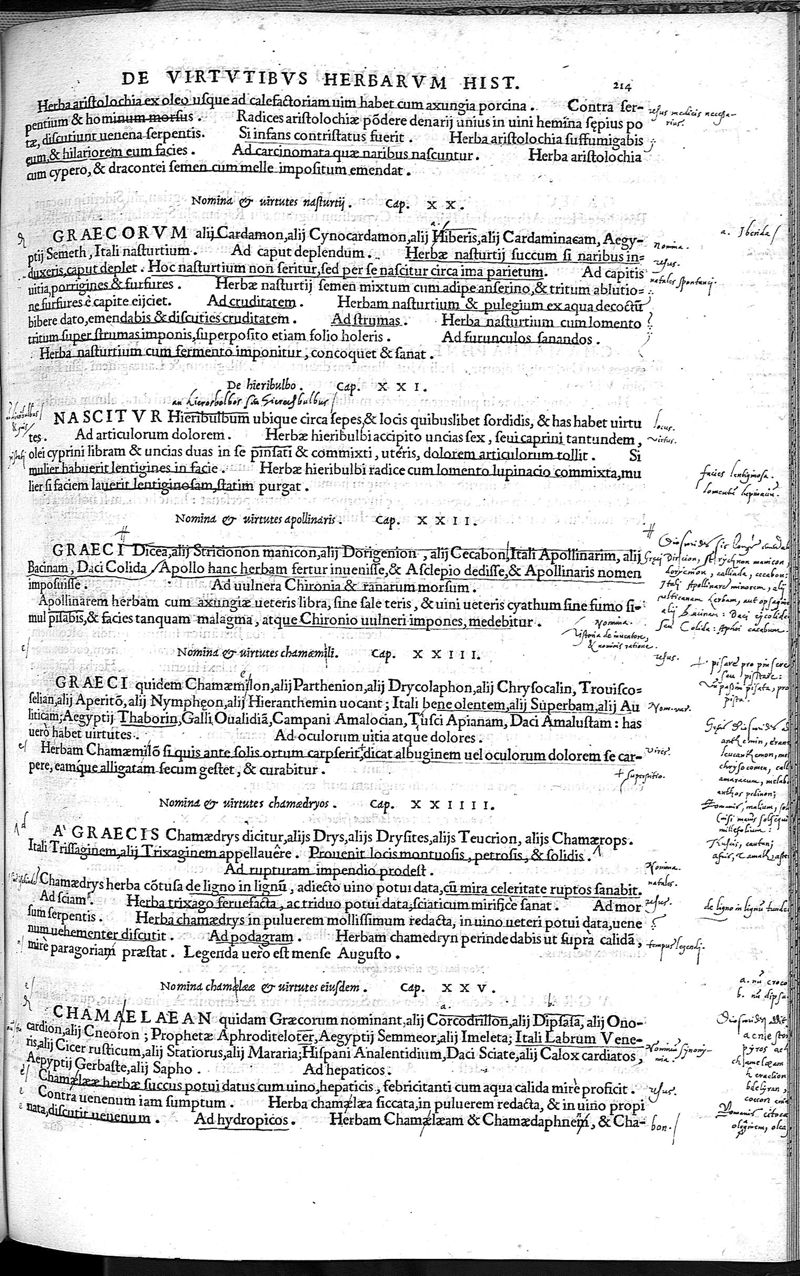 DE VIRTVTIBVS HERBARVM HIST. 214
Herba aristolochia ex oleo usque ad calefactoriam uim habet cum axungia porcina. Contra ser-
pentium & hominum morsus. Radices aristolochiæ põdere denarij unius in uini hemina sępius po
tæ, discutiunt uenena serpentis. Si infans contristatus fuerit. Herba aristolochia suffumigabis
eum, & hilariorem eum facies. Ad carcinomata quæ naribus nascuntur. Herba aristolochia
cum cypero, & dracontei semen cum melle impositum emendat.
usus medicis necessa-
rius.
Nomina & uirtutes nasturtij. Cap. XX.
GRAECORVM alij Cardamon, alij Cynocardamon, alij Hiberis, alij Cardaminaeam, Aegy-
ptij Semeth, Itali nasturtium. Ad caput deplendum. Herbæ nasturtij succum si naribus in-
duxeris, caput deplet. Hoc nasturtium non seritur, sed per se nascitur circa ima parietum. Ad capitis
uitia, porrigines & furfures. Herbæ nasturtij semen mixtum cum adipe anserino, & tritum ablutio-
ne furfures è capite eijciet. Ad cruditatem. Herbam nasturtium & pulegium ex aqua decoctũ
bibere dato, emendabis & discuties cruditatem. Ad strumas. Herba nasturtium cum lomento
tritum super strumas imponis, superposito etiam folio holeris. Ad furunculos sanandos.
Herba nasturtium cum fermento imponitur, concoquet & sanat.
a. Iberida
Nomina.
usus.
natales spontanei.
De hieribulbo. Cap. XXI.
an hierosbolbos siue hierosbulbus
NASCITVR Hieribulbum ubique circa sepes, & locis quibuslibet sordidis, & has habet uirtu
tes. Ad articulorum dolorem. Herbæ hieribulbi accipito uncias sex, seui caprini tantundem,
olei cyprini libram & uncias duas in se pinsati & commixti, utéris, dolorem articulorum tollit. Si
mulier habuerit lentigines in facie. Herbæ hieribulbi radice cum lomento lupinacio commixta, mu
lier si faciem lauerit lentiginosam, statim purgat.
locus.
uirtus.
facies lentiginosa.
lomentum lupinacium.
Nomina & uirtutes apollinaris. Cap. XXII.
GRAECI Dicea, alij Stricnonon manicon, alij Dorigenion, alij Cecabon, Itali Apollinarim, alij
Bacinam, Daci Colida. Apollo hanc herbam fertur inuenisse, & Asclepio dedisse, & Apollinaris nomen
imposuisse. Ad uulnera Chironia & ranarum morsum.
Apollinarem herbam cum axungiæ ueteris libra, sine sale teris, & uini ueteris cyathum sine fumo si-
mul pisabis, & facies tanquam malagma, atque Chironio uulneri impones, medebitur.
Nomina.
Historia de inuentore,
& nominis ratione.
usus.
Nomina & uirtutes chamæmili. Cap. XXIII.
GRAECI quidem Chamæmilon, alij Parthenion, alij Drycolaphon, alij Chrysocalin, Trouisco-
selian, alij Aperitõ, alij Nympheon, alij Hieranthemin uocant; Itali bene olentem, alij Superbam, alij Au
liticam; Aegyptij Thaborin, Galli Oualidiã, Campani Amalocian, Tusci Apianam, Daci Amalustam: has
uerò habet uirtutes. Ad oculorum uitia atque dolores.
Herbam Chamæmilõ si quis ante solis ortum carpserit, dicat albuginem uel oculorum dolorem se car-
pere, eamque alligatam secum gestet, & curabitur.
Nomina.
uires.
+ superstitio.
Nomina & uirtutes chamædryos. Cap. XXIIII.
A GRAECIS Chamædrys dicitur, alijs Drys, alijs Drysites, alijs Teucrion, alijs Chamærops.
Itali Trissaginem, alij Trixaginem appellauêre. Prouenit locis montuosis, petrosis, & solidis.
Ad rupturam impendio prodest.
Chamædrys herba cõtusa de ligno in lignũ, adiecto uino potui data, cũ mira celeritate ruptos sanabit.
Ad sciam. Herba trixago feruefacta, ac triduo potui data, sciaticum mirificè sanat. Ad mor
sum serpentis. Herba chamædrys in puluerem mollissimum redacta, in uino ueteri potui data, uene
num uehementer discutit. Ad podagram. Herbam chamedryn perinde dabis ut suprà calidã,
mirè paragoriam præstat. Legenda uero est mense Augusto.
Nomina.
natales.
usus.
tempus legendi.
Nomina chamælææ & uirtutes eiusdem. Cap. XXV.
CHAMAELAEAN quidam Græcorum nominant, alij Corcodrillon, alij Dipsasã, alij Ono-
cardion, alij Cneoron; Prophetæ Aphroditeloter, Aegyptij Semmeor, alij Imeleta; Itali Labrum Vene-
ris, alij Cicer rusticum, alij Statiorus, alij Mararia; Hispani Analentidium, Daci Sciate, alij Calox cardiatos,
Aepyptij Gerbaste, alij Sapho. Ad hepaticos.
Chamælææ herbæ succus potui datus cum uino, hepaticis, febricitanti cum aqua calida mirè proficit.
Contra uenenum iam sumptum. Herba chamælæa siccata, in puluerem redacta, & in uino propi
nata, discutit uenenum. Ad hydropicos. Herbam Chamælæam & Chamædaphnem, & Cha-
usus.
bon.